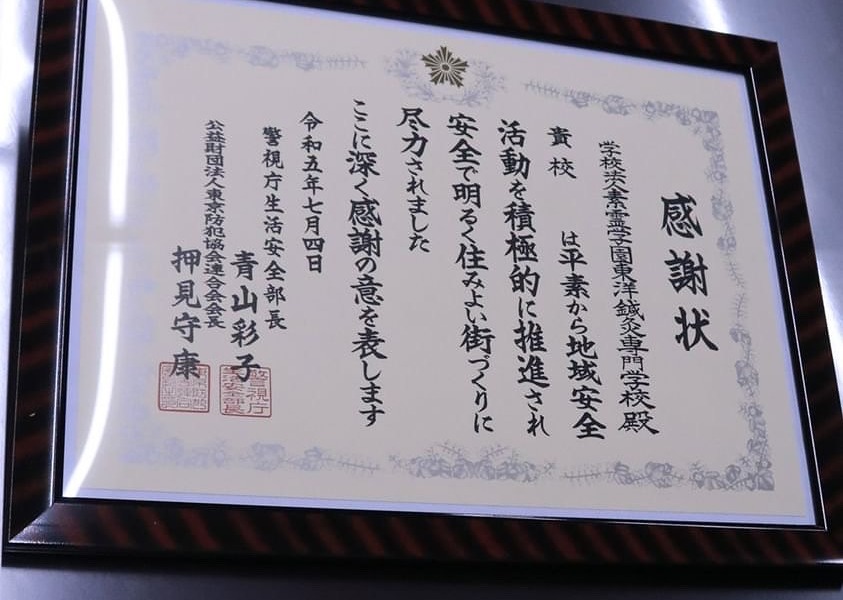 感謝状
学校法人素霊学園東洋鍼灸専門学校殿
貴校は平素から地域安全
活動を積極的に推進され
安全で明るく住みよい街づくりに
尽力されました
ここに深く感謝の意を表します
令和五年七月四日
警視庁生活安全部長
青山彩子
公益財団法人東京防犯協会連合会会長
押見守康
警視庁
生活安全部長